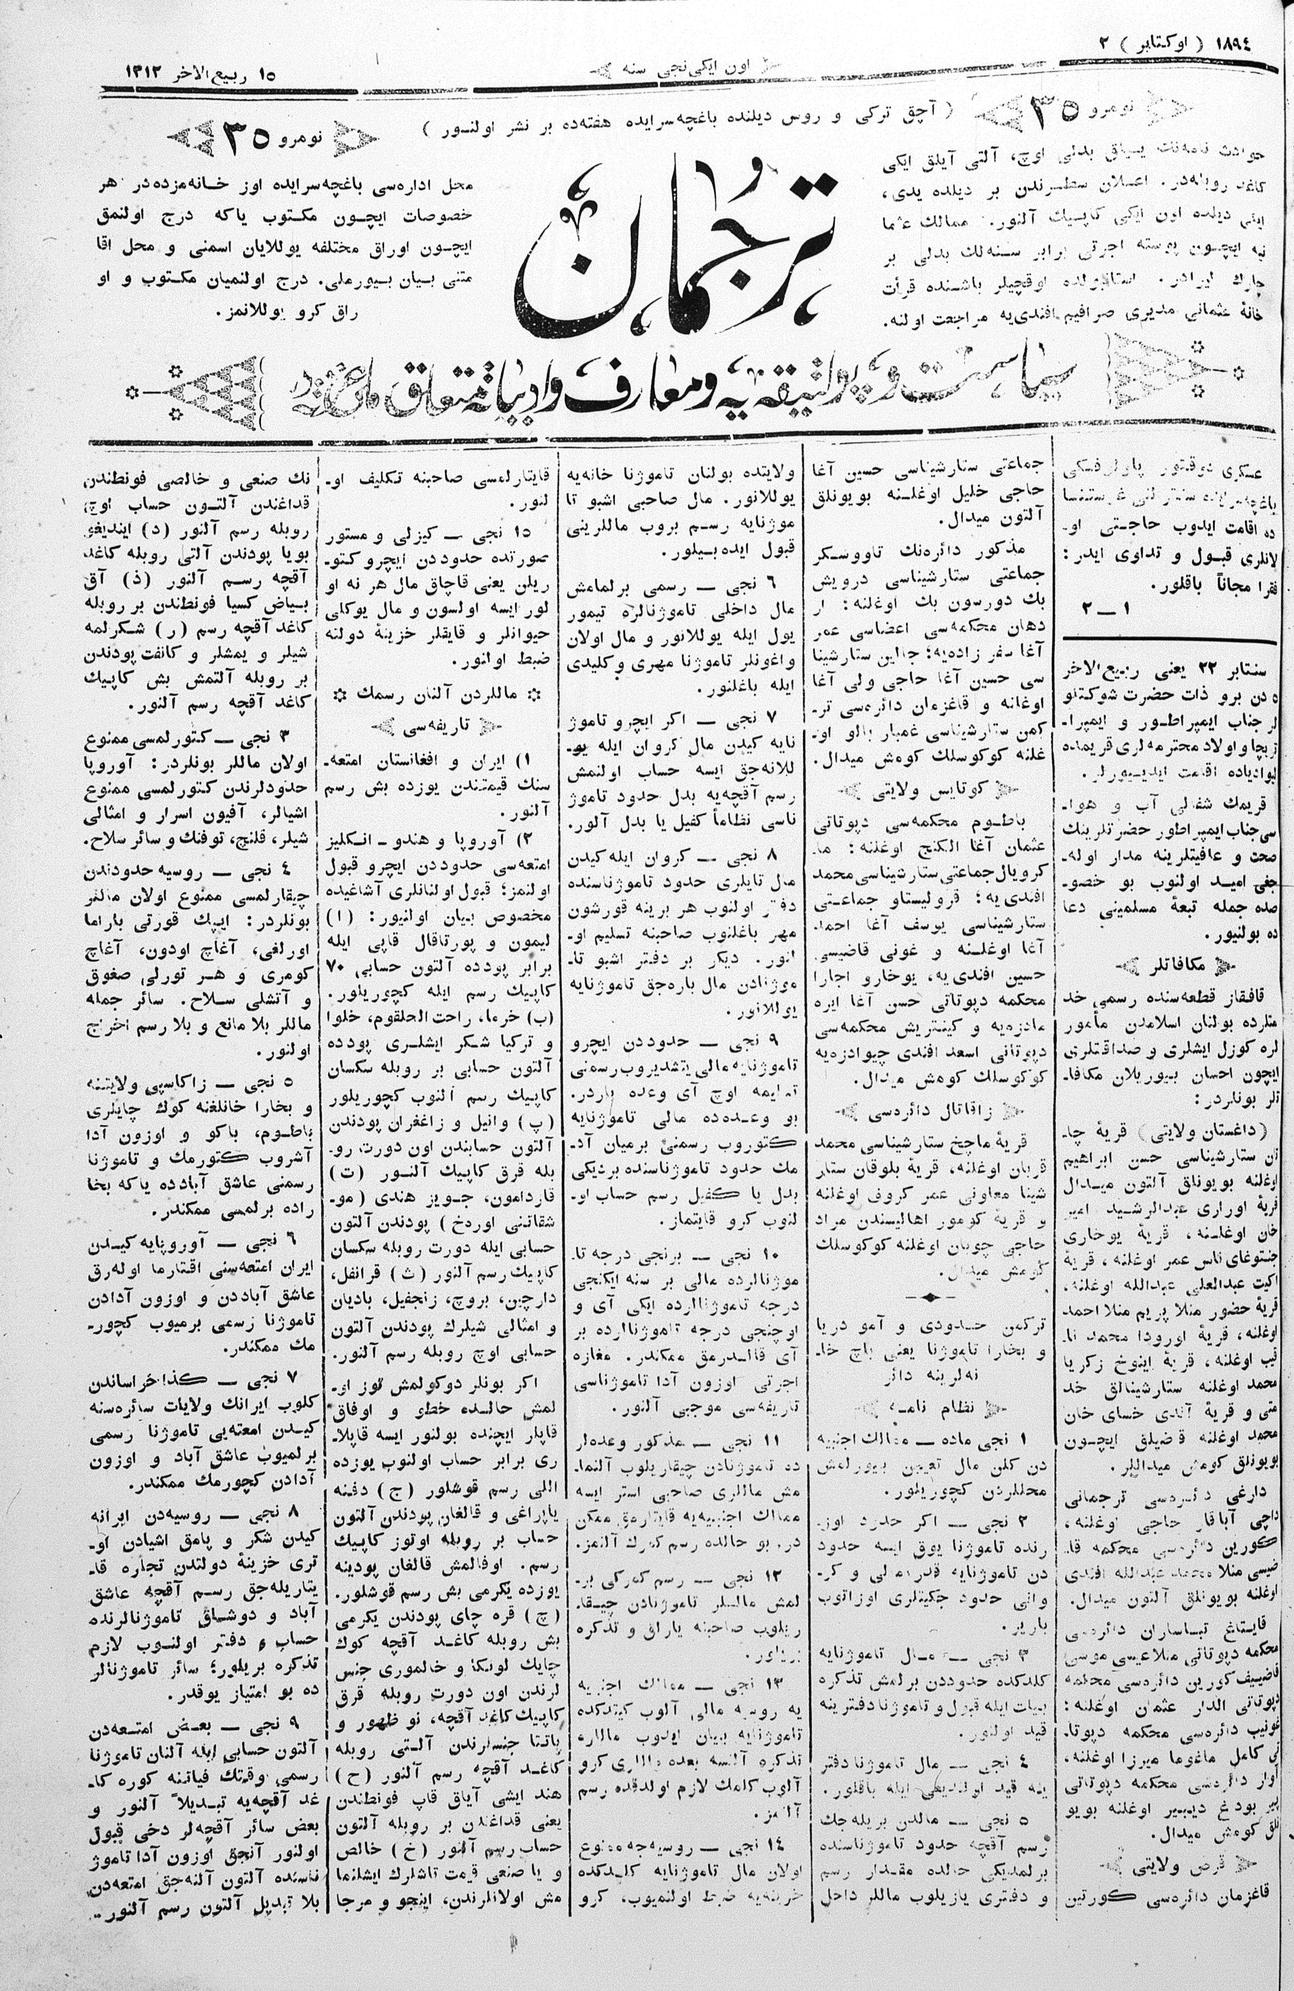 ١٨٩٤ ( اوكتابر ) ٢
اون ايكی نجی سنه
١٥ ربيع الاخر ١٣١٢
نومرو ٣٥
( آچق تركی و روس ديلنده باغچه‌سرايده هفته‌ده بر نشر اولنور )
نومرو ٣٥
حوادث نامه‌نك ييللق بدلی اوچ، آلتی آيلق ايكی
كاغد روبله‌در. اعلان سطرندن بر ديلده يدی،
ايكی ديلده اون ايكی كاپيك آلنور. ممالك عثما
نيه ايچون پوسته اجرتی برابر سنه‌لك بدلی بر
چارك ليرادر. استانبولده اوقچيلر باشنده قرأت
خانهٔ عثمانی مديری صرافيم افندی‌يه مراجعت اولنه.
ترجمان
محل اداره‌سی باغچه‌سرايده اوز خانه‌مزده‌در هر
خصوصات ايچون مكتوب ياكه درج اولنمق
ايچون اوراق مختلفه يوللايان اسمنی و محل اقا
متنی بيان بيورملی. درج اولنميان مكتوب و او
راق كرو يوللانمز.
عسكری دوقتور پاولوفسكی
ده اقامت ايدوب حاجتی او
لانلری قبول و تداوی ايدر:
فقرا مجاناً باقلور.
١—٢
سنتابر ٢٢ يعنی ربيع الاخر
٥ دن برو ذات حضرت شوكتلو
لر جناب ايمپراطور و ايمپرا
زيچا و اولاد محترمه‌لری قريمده
ليواديه‌ده اقامت ايديورلر.
قريمك شفالی آب و هوا
سی جناب ايمپراطور حضرتلرينك
صحت و عافيتلرينه مدار اوله
جغی اميد اولنوب بو خصو
صده جمله تبعهٔ مسلمينی دعا
ده بولنيور.
مكافاتلر
قافقاز قطعه‌سنده رسمی خد
متلرده بولنان اسلامدن مأمور
لره كوزل ايشلری و صداقتلری
ايچون احسان بيوريلان مكافا
تلر بونلردر:
(داغستان ولايتی) قريهٔ چا
تان ستارشيناسی حسن ابراهيم
اوغلنه بويونلق آلتون ميدال
قريهٔ اوراری عبدالرشيد امير
خان اوغلنه، قريهٔ يوخاری
اكيت عبدالعلی عبدالله اوغلنه،
قريهٔ حضور منلا پريم منلا احمد
اوغلنه، قريهٔ اورودا محمد نا
ئب اوغلنه، قريهٔ اينوخ زكريا
محمد اوغلنه ستارشينالق خد
متی و قريهٔ آندی خسای خان
محمد اوغلنه قضيلق ايچون
بويونلق كومش ميداللر.
دارغی دائره‌سی ترجمانی
حاجی اوغلنه،
كورين دائره‌سی محكمه قا
ضيسی منلا محمد عبدالله افندی
اوغلنه بويونلق آلتون ميدال.
قايتاغ تباساران دائره‌سی
محكمه دپوتاتی منلا عيسی موسی
دپوتاتی الدار عثمان اوغلنه:
غونيب دائره‌سی محكمه دپوتا
تی كامل ماغوما ميرزا اوغلنه،
آوار دائره‌سی محكمه دپوتاتی
پير بوداغ ديبير اوغلنه بويو
نلق كومش ميدال.
قرص ولايتی
قاغزمان دائره‌سی كورتين
جماعتی ستارشيناسی حسين آغا
حاجی خليل اوغلنه بويونلق
آلتون ميدال.
مذكور دائره‌نك تاووسكر
جماعتی ستارشيناسی درويش
بك دورسون بك اوغلنه: ار
دهان محكمه‌سی اعضاسی عمر
آغا سفر زاده‌يه؛ ستارشينا
سی حسين آغا حاجی ولی آغا
اوغلنه و قاغزمان دائره‌سی تر
كمن ستارشيناسی غمبار بالو او
غلنه كوكوسلك كومش ميدال.
كوتايس ولايتی
باطوم محكمه‌سی دپوتاتی
عثمان آغا الكنج اوغلنه: ما
كرويال جماعتی ستارشيناسی محمد
افندی‌يه: قروليستاو جماعتی
ستارشيناسی يوسف آغا احمد
آغا اوغلنه و غونی قاضيسی
حسين افندی‌يه، يوخارو اجارا
محكمه دپوتاتی حسن آغا ايره
مادزه‌يه و كينتريش محكمه‌سی
دپوتاتی اسعد افندی چيوادزه‌يه
كوكوسلك كومش ميدال.
زاقاتال دائره‌سی
قريهٔ ماچخ ستارشيناسی محمد
قربان اوغلنه، قريهٔ بلوقان ستار
شينا معاونی عمر كروف اوغلنه
و قريهٔ كومور اهاليسندن مراد
حاجی چوبان اوغلنه كوكوسلك
كومش ميدال.
تركمن حدودی و آمو دريا
و بخارا تاموژنا يعنی باج خا
نه‌لرينه دائر
نظام نامه
١ نجی ماده — ممالك اجنبيه
دن كلن مال تعيين بيورلمش
محللردن كچوريلور.
٢ نجی — اكر حدود اوز
رنده تاموژنا يوق ايسه حدود
دن تاموژنايه قدر مالی و كر
وانی حدود جكيتلری اوزاتوب
بارير.
٣ نجی — مال تاموژنايه
كلدكده حدوددن برلمش تذكره
بيات ايله قبول و تاموژنا دفترينه
قيد اولنور.
٤ نجی — مال تاموژنا دفتر
ينه قيد اولنديغی ايله باقلور.
٥ نجی — مالدن بريله‌جك
رسم آقچه حدود تاموژناسنده
برلمديكی حالده مقدار رسم
و دفتری يازيلوب ماللر داخل
ولايتده بولنان تاموژنا خانه‌يه
يوللانور. مال صاحبی اشبو تا
موژنايه رسم بروب ماللرينی
قبول ايده بيلور.
٦ نجی — رسمی برلمامش
مال داخلی تاموژنالره تيمور
يول ايله يوللانور و مال اولان
واغونلر تاموژنا مهری و كليدی
ايله باغلنور.
٧ نجی — اكر ايچرو تاموژ
نايه كيدن مال كروان ايله يو
للانه‌جق ايسه حساب اولنمش
رسم آقچه‌يه بدل حدود تاموژ
ناسی نظاماً كفيل يا بدل آلور.
٨ نجی — كروان ايله كيدن
مال تايلری حدود تاموژناسنده
دفتر اولنوب هر برينه قورشون
مهر باغلنوب صاحبنه تسليم او
لنور. ديكر بر دفتر اشبو تا
موژنادن مال باره‌جق تاموژنايه
يوللانور.
٩ نجی — حدوددن ايچرو
تاموژنايه مالی يتشديروب رسمنی
تسليمه اوچ آی وعده باردر.
بو وعده‌ده مالی تاموژنايه
كتوروب رسمنی برميان آد
مك حدود تاموژناسنده برديكی
بدل يا كفيل رسم حساب او
لنوب كرو قايتماز.
١٠ نجی — برنجی درجه تا
موژنالرده مالی بر سنه ايكنجی
درجه تاموژنالرده ايكی آی و
اوچنجی درجه تاموژنالرده بر
آی قالدرمق ممكندر. مغازه
اجرتی اوزون آدا تاموژناسی
تاريفه‌سی موجبی آلنور.
١١ نجی — مذكور وعده‌لر
ده تاموژنادن چيقاريلوب آلنما
مش ماللری صاحبی استر ايسه
ممالك اجنبيه‌يه قايتارمق ممكن
در. بو حالده رسم كمرك آلنمز.
١٢ نجی — رسم كمركی بر
لمش ماللر تاموژنادن چيقا
ريلوب صاحبنه يارلق و تذكره
بريلور.
١٣ نجی — ممالك اجنبيه
يه روسيه مالی آلوب كيتدكده
تاموژنايه بيان ايدوب ماللره
تذكره آلنسه بعده ماللری كرو
آلوب كلمك لازم اولدقده رسم
آلنمز.
١٤ نجی — روسيه‌جه ممنوع
اولان مال تاموژنايه كلدكده
خزينه‌يه ضبط اولنميوب، كرو
قايتارلمسی صاحبنه تكليف او
لنور.
١٥ نجی — كيزلی و مستور
صورتده حدوددن ايچرو كتو
ريلن يعنی قاچاق مال هر نه او
لور ايسه اولسون و مال يوكلی
حيوانلر و قايقلر خزينهٔ دولته
ضبط اولنور.
ماللردن آلنان رسمك
تاريفه‌سی
١) ايران و افغانستان امتعه
سنك قيمتندن يوزده بش رسم
آلنور.
٢) آوروپا و هندو ـ انكليز
امتعه‌سی حدوددن ايچرو قبول
اولنمز؛ قبول اولنانلری آشاغيده
مخصوص بيان اولنيور: (ا)
ليمون و پورتاقال قاپی ايله
برابر پودده آلتون حسابی ٧٠
كاپيك رسم ايله كچوريلور.
(ب) خرما، راحت الحلقوم، خلوا
و تركيا شكر ايشلری پودده
آلتون حسابی بر روبله سكسان
كاپيك رسم آلنوب كچوريلور
(پ) وانيل و زاغفران پودندن
آلتون حسابندن اون دورت رو
بله قرق كاپيك آلنور (ت)
قاردامون، جويز هندی (مو
شقاتنی اوره‌خ) پودندن آلتون
حسابی ايله دورت روبله سكسان
كاپيك رسم آلنور (ث) قرانفل،
دارچين، بروچ، زنجفيل، باديان
و امثالی شيلرك پودندن آلتون
حسابی اوچ روبله رسم آلنور.
اكر بونلر دوكولمش توز او
لمش حالده خطو و اوفاق
قاپلر ايچنده بولنور ايسه قاپلا
ری برابر حساب اولنوب يوزده
اللی رسم قوشلور (ج) دفنه
ياپراغی و قالغان پودندن آلتون
حساب بر روبله اوتوز كاپيك
رسم. اوفالمش قالغان پودينه
يوزده يكرمی بش رسم قوشلور.
(چ) قره چای پودندن يكرمی
بش روبله كاغد آقچه كوك
چايك لونكا و خالموری جنس
لرندن اون دورت روبله قرق
كاپيك كاغد آقچه، نو ظهور و
پاتتا جنسلرندن آلتی روبله
كاغد آقچه رسم آلنور (ح)
هند ايشی آياق قاپ فونطندن
يعنی قداغدن بر روبله آلتون
حساب رسم آلنور (خ) خالص
و يا صنعی قيمت تاشلرك ايشلنما
مش اولانلرندن، اينجو و مرجا
نك صنعی و خالصی فونطندن
قداغندن آلتون حساب اوچ
روبله رسم آلنور (د) اينديغو
بويا پودندن آلتی روبله كاغد
آقچه رسم آلنور (ذ) آق
بياض كسيا فونطندن بر روبله
كاغد آقچه رسم (ر) شكرلمه
شيلر و يمشلر و كانفت پودندن
بر روبله آلتمش بش كاپيك
كاغد آقچه رسم آلنور.
٣ نجی — كتورلمسی ممنوع
اولان ماللر بونلردر: آوروپا
حدودلرندن كتورلمسی ممنوع
اشيالر، آفيون اسرار و امثالی
شيلر، قلنج، توفنك و سائر سلاح.
٤ نجی — روسيه حدودندن
چيقارلمسی ممنوع اولان ماللر
بونلردر: ايپك قورتی باراما
اورلغی، آغاچ اودون، آغاچ
كوموری و هر تورلی صغوق
و آتشلی سلاح. سائر جمله
ماللر بلا مانع و بلا رسم اخراج
اولنور.
٥ نجی — زاكاسپی ولايتنه
و بخارا خانلغنه كوك چايلری
باطوم، باكو و اوزون آدا
آشروب كتورمك و تاموژنا
رسمنی عاشق آبادده ياكه بخا
راده برلمسی ممكندر.
٦ نجی — آوروپايه كيدن
ايران امتعه‌سنی اقتارما اوله‌رق
عاشق آباددن و اوزون آدادن
تاموژنا رسمی برميوب كچور
مك ممكندر.
٧ نجی — كذا خراساندن
كلوب ايرانك ولايات سائره‌سنه
كيدن امتعه‌يی تاموژنا رسمی
برلميوب عاشق آباد و اوزون
آدادن كچورمك ممكندر.
٨ نجی — روسيه‌دن ايرانه
كيدن شكر و پامق اشيادن او
تری خزينهٔ دولتدن تجاره قا
يتاريله‌جق رسم آقچه عاشق
آباد و دوشاق تاموژنالرنده
حساب و دفتر اولنوب لازم
تذكره بريلور؛ سائر تاموژنالر
ده بو امتياز يوقدر.
٩ نجی — بعض امتعه‌دن
آلتون حسابی ايله آلنان تاموژنا
رسمی وقتك فياتنه كوره كا
غد آقچه‌يه تبديلاً آلنور و
بعض سائر آقچه‌لر دخی قبول
اولنور آنجق اوزون آدا تاموژ
ناسنده آلتون آلنه‌جق امتعه‌دن
بلا تبديل آلتون رسم آلنور.